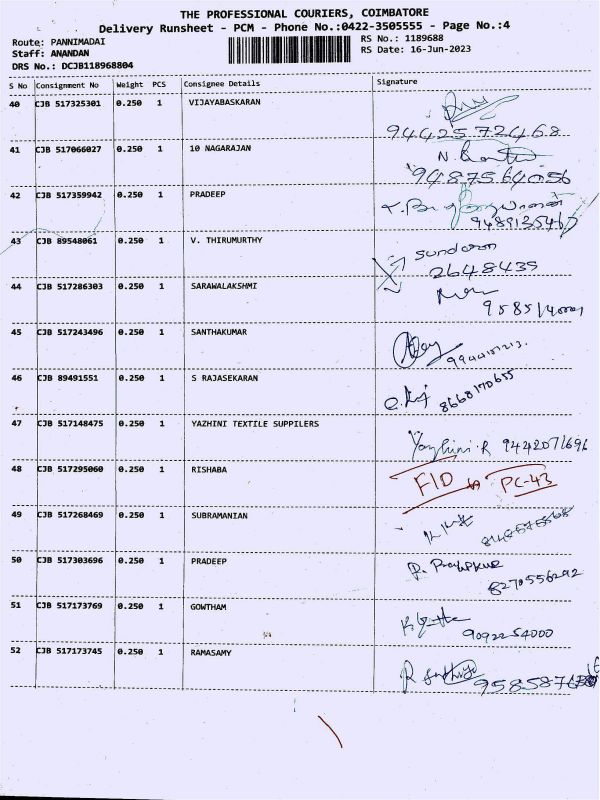 THE PROFESSIONAL COURIERS, COIMBATORE
Delivery Runsheet - PCM - Phone No.:0422-3505555 - Page No.:4
Route: PANNIMADAI
RS No.: 1189688
Staff: ANANDAN
RS Date: 16-Jun-2023
DRS No.: DCJB118968804
S No Consignment No Weight PCS Consignee Details Signature
40 CJB 517325301 0.250 1 VIJAYABASKARAN
9442572468
41 CJB 517066027 0.250 1 10 NAGARAJAN
9487564056
42 CJB 517359942 0.250 1 PRADEEP
9489135467
43 CJB 89548061 0.250 1 V. THIRUMURTHY
Sundaran
2648439
44 CJB 517286303 0.250 1 SARAWALAKSHMI
45 CJB 517243496 0.250 1 SANTHAKUMAR
46 CJB 89491551 0.250 1 S RAJASEKARAN
8668170655
47 CJB 517148475 0.250 1 YAZHINI TEXTILE SUPPILERS
Yazhini.R 9442071696
48 CJB 517295060 0.250 1 RISHABA
FID PC-43
49 CJB 517268469 0.250 1 SUBRAMANIAN
50 CJB 517303696 0.250 1 PRADEEP
8270556292
51 CJB 517173769 0.250 1 GOWTHAM
9092254000
52 CJB 517173745 0.250 1 RAMASAMY